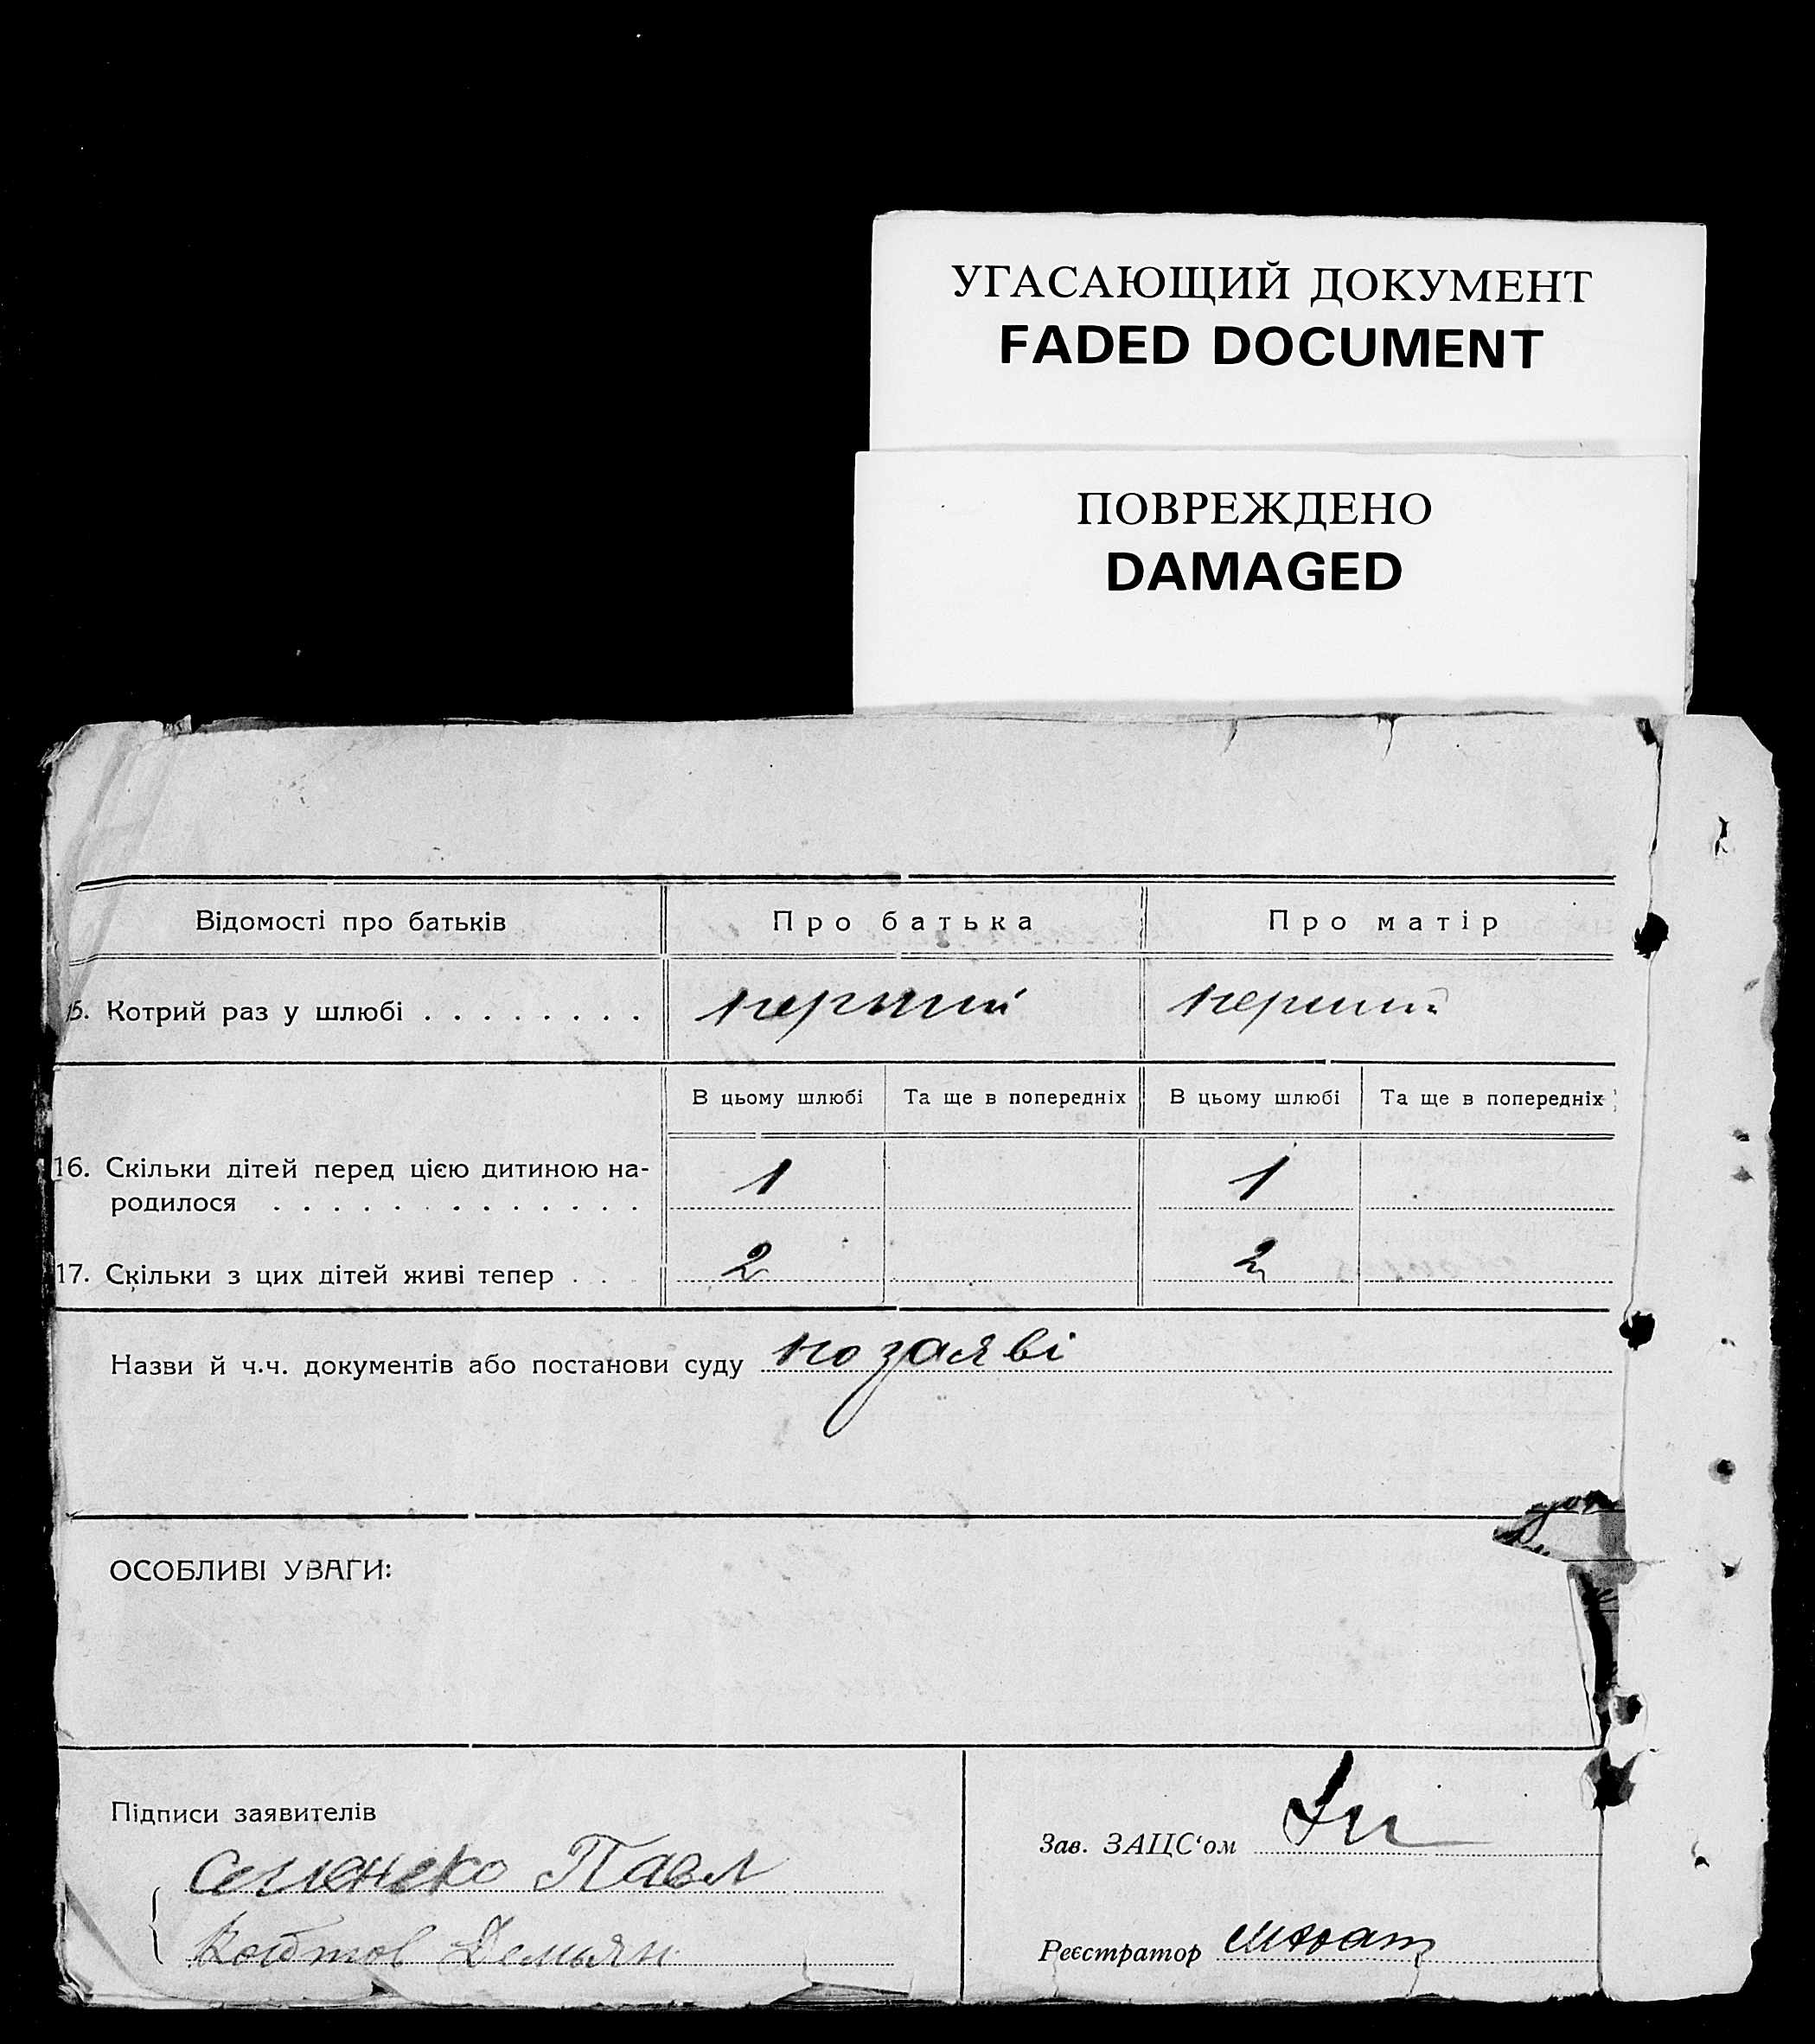 УГАСАЮЩИЙ ДОКУМЕНТ
FADED DOCUMENT
ПОВРЕЖДЕНО
DAMAGED
Відомості про батьків Про батька Про матір
5. Котрий раз у шлюбі . . . . . . . . перший перший
В цьому шлюбі Та ще в попередніх В цьому шлюбі Та ще в попередніх
16. Скільки дітей перед цією дитиною на-
родилося . . . . . . . . . . . . . 1 1
17. Скільки з цих дітей живі тепер . . . 2 2
Назви й ч.ч. документів або постанови суду по заяві
ОСОБЛИВІ УВАГИ:
Підписи заявителів
Зав. ЗАЦС‘ом
Павл
Демьян
Реєстратор